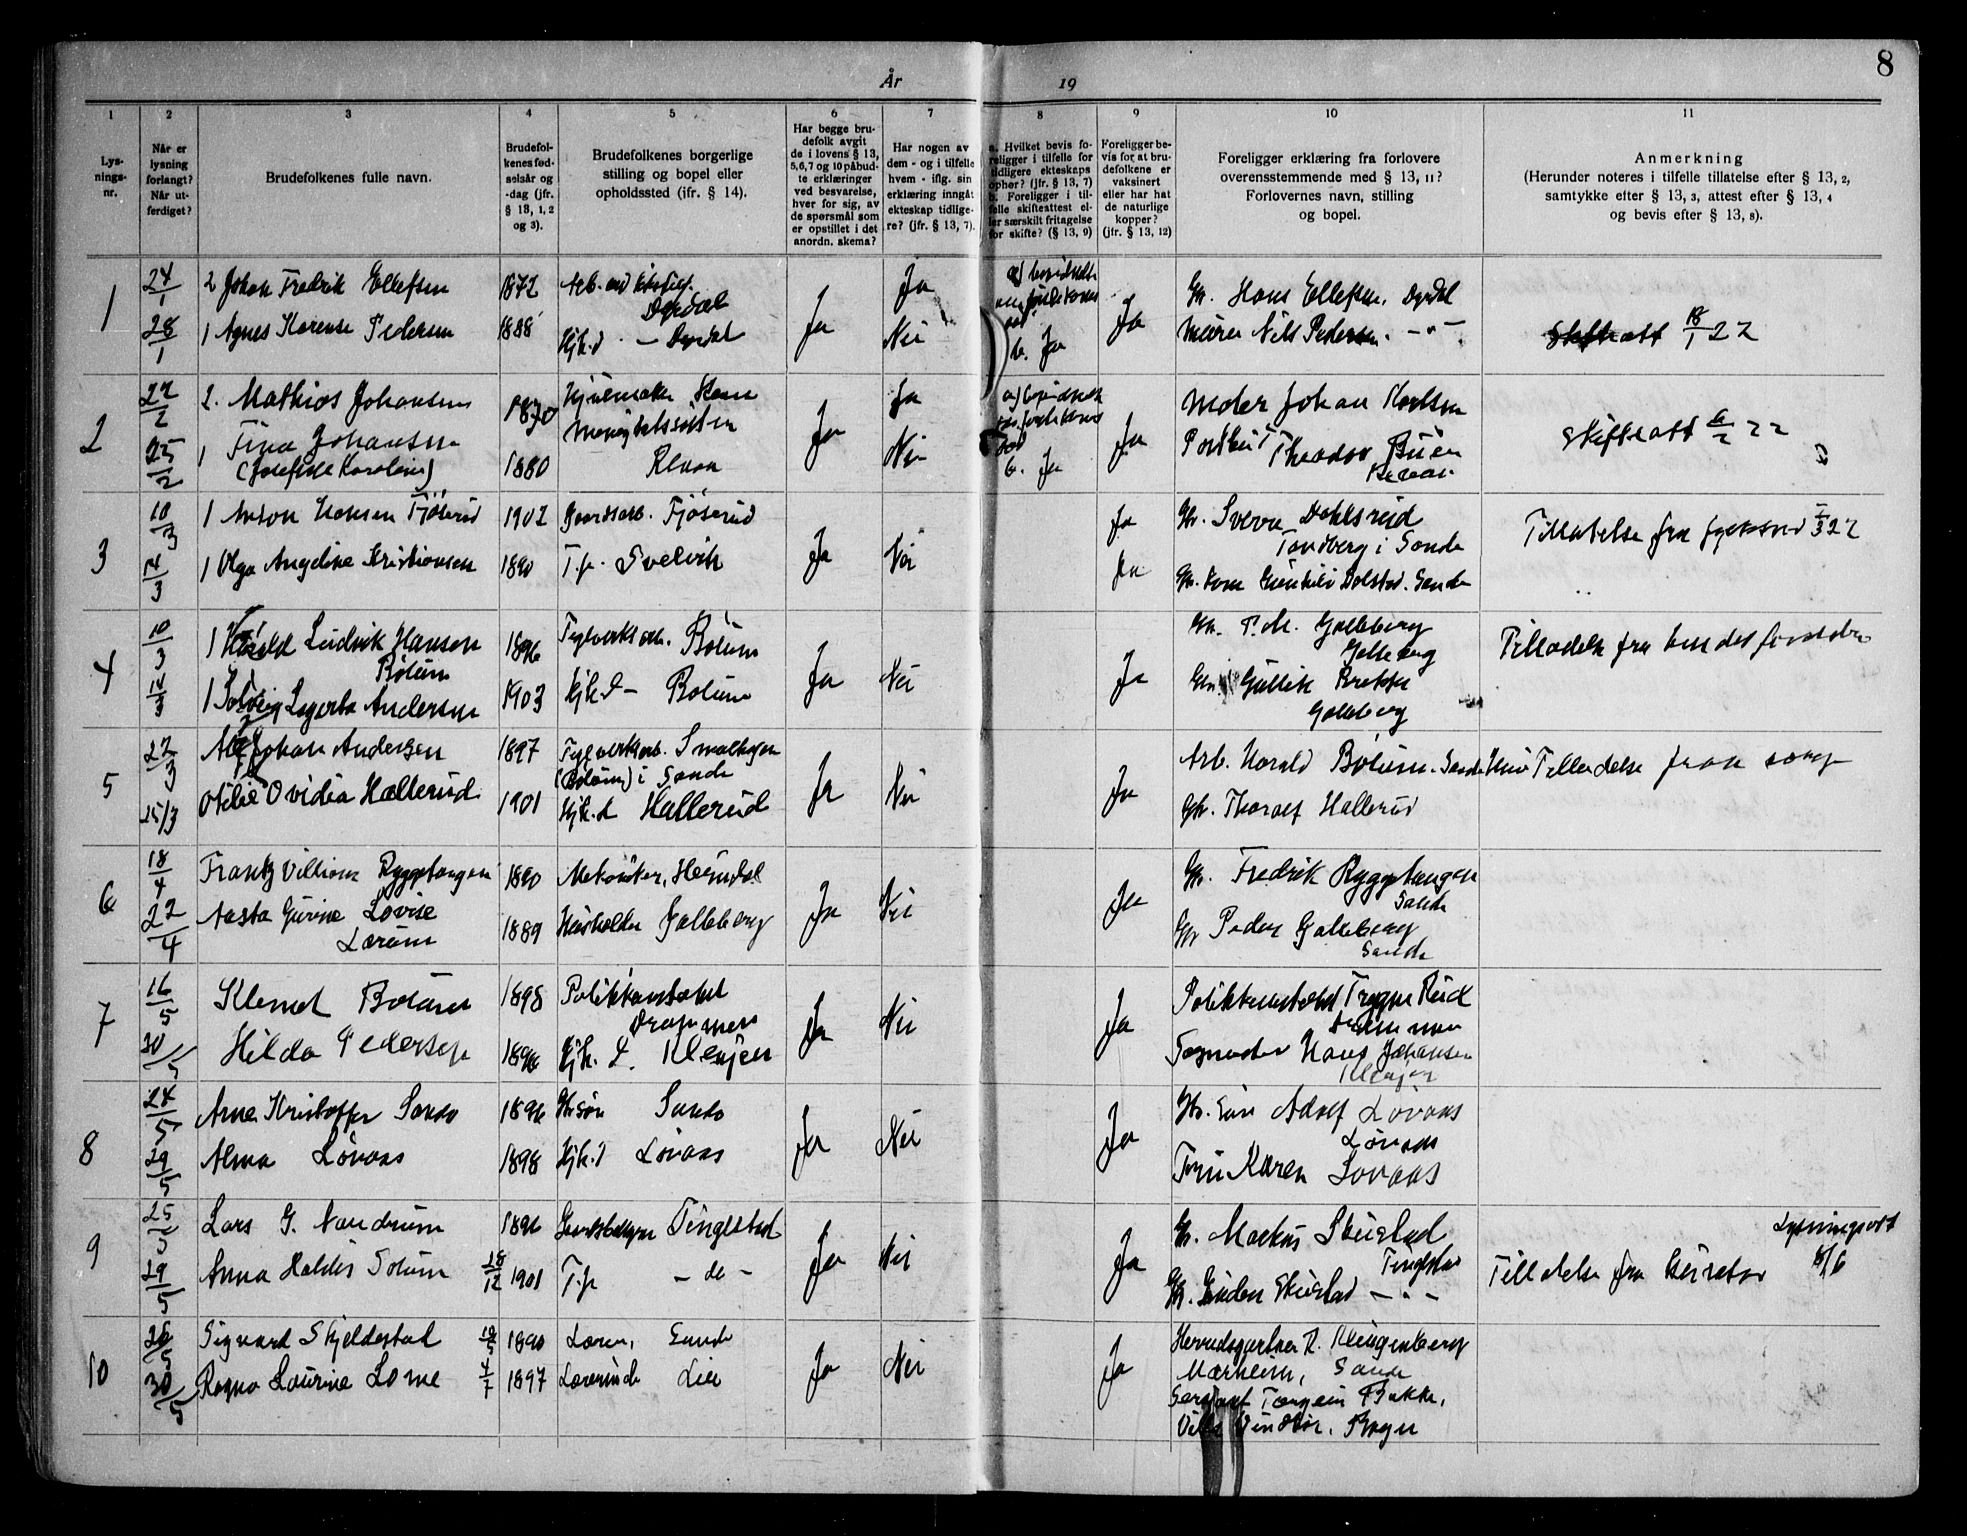 8
År 19
1 2 3 4 5 6 7 8 9 10 11
Lys-
nings-
nr.
Når er
lysning
forlangt?
Når ut-
ferdiget?
Brudefolkenes fulle navn.
Brudefol-
kenes fød-
selsår og
-dag (jfr.
§ 13, 1, 2
og 3).
Brudefolkenes borgerlige
stilling og bopel eller
opholdssted (ifr. § 14).
Har begge bru-
defolk avgit
de i lovens § 13,
5,6,7 og 10 påbud-
te erklæringer
ved besvarelse,
hver for sig, av
de spørsmål som
er opstillet i det
anordn. skema?
Har nogen av
dem - og i tilfelle
hvem - iflg. sin
erklæring inngåt
ekteskap tidlige-
re? (jfr. § 13, 7).
a. Hvilket bevis fo-
religger i tilfelle for
tidligere ekteskaps
ophør? (jfr. § 13, 7)
b. Foreligger i til-
felle skifteattest el-
ler særskilt fritagelse
for skifte? (§ 13, 9)
Foreligger be-
vis for at bru-
defolkene er
vaksinert
eller har hat
de naturlige
kopper?
(jfr. § 13, 12)
Foreligger erklæring fra forlovere
overensstemmende med § 13, 11?
Forlovernes navn, stilling
og bopel.
Anmerkning
(Herunder noteres i tilfelle tillatelse efter § 13, 2,
samtykke efter § 13, 3, attest efter § 13, 4
og bevis efter § 13, 8).
1
24/1
28/1
2 Johan Fredrik Ellefsen
1 Agnes Karense Pedersen
1872
1888
Dyrdal
Hjk.d. - Dyrdal
Ja
Ja
Nei
b. Ja
Ja
Gb. Hans Ellefsen, Dyrdal
Murer Nils Pedersen. - " -
Skifteatt 18/1 22
2
22/2
25/2
2. Mathias Johansen
1 Tina Johansen
(Josefine Karoline)
1870
1880
Ja
Ja
Nei
b. Ja
Ja
Maler Johan Karlsen
Postbud Theodor Buer
Skifteatt 6/2 22
3
10/3
14/3
1 Anton Hansen Fjøserud
1 Olga Angeline Kristiansen
1902
1890
Gaardsarb. Fjøserud
T.p. Svelvik
Ja
Nei
Ja
Ja
Gb. Svend Dahlsrud
Tandberg i Sande
Sande
Tillatelse fra 1/3 22
4
10/3
14/3
1 Harald Ludvik Hansen
Bolum
1 Solveig Lagerta Andersen
1896
1903
Teglverksarb. Bolum
Hjk.d - Bolum
Ja
Nei
Ja
Gb. P.M. Galleberg
Galleberg
Gb. Gullik Brekke
Galleberg
Tilladelse fra
5
22/3
25/3
Alf Johan Andersen
Otilie Ovidia Hallerud
1897
1901
Teglverksarb. Smalhagen
(Bolum) i Sande
Hjk.d Hallerud
Ja
Nei
Ja
Arb. Harald Bolum. Sande
Gb. Thoralf Hallerud
Tilladelse fra
6
18/4
22/4
Frantz Villiam Ryggetangen
Aasta Gurine Lovise
Lærum
1890
1889
Mekaniker,
Husholder Galleberg
Ja
Nei
Ja
Gb. Fredrik Ryggetangen
Sande
Gb Peder Galleberg
Sande
7
16/5
30/5
Klemet Bolum
Hilda Pedersen
1898
1896
Politikonstabel
Drammen
Hjk. d. Klevjer
Ja
Nei
Ja
Politikonstabel Trygve Rud
Drammen
Hans Johansen
Klevjer
8
24/5
29/5
Arne Kristoffer Sando
Alma Løvaas
1896
1898
Gb. søn Sando
Hjk.d Løvaas
Ja
Nei
Ja
Gb. søn Adolf Løvaas
Løvaas
Fru Karen Løvaas
9
25/5
29/5
Lars G. Nandrum
Anna Haldis Solum
1896
28/12 1901
Tinglestad
T.p. - do -
Ja
Nei
Ja
Gb. Markus Skuestad
Tinglestad
Gb. Skuestad - " -
Tilladelse fra Kurator
Lysningsatt
8/6
10
26/5
30/5
Sigvard Skjeldestad
Ragna Laurine Lome
10/5 1890
4/7 1897
Lærer, Sande
Lærerinde Lier
Ja
Nei
Ja
Herredsgartner R. Klingenberg
Mærheim, Sande
Sersjant Torgeir Bakke,